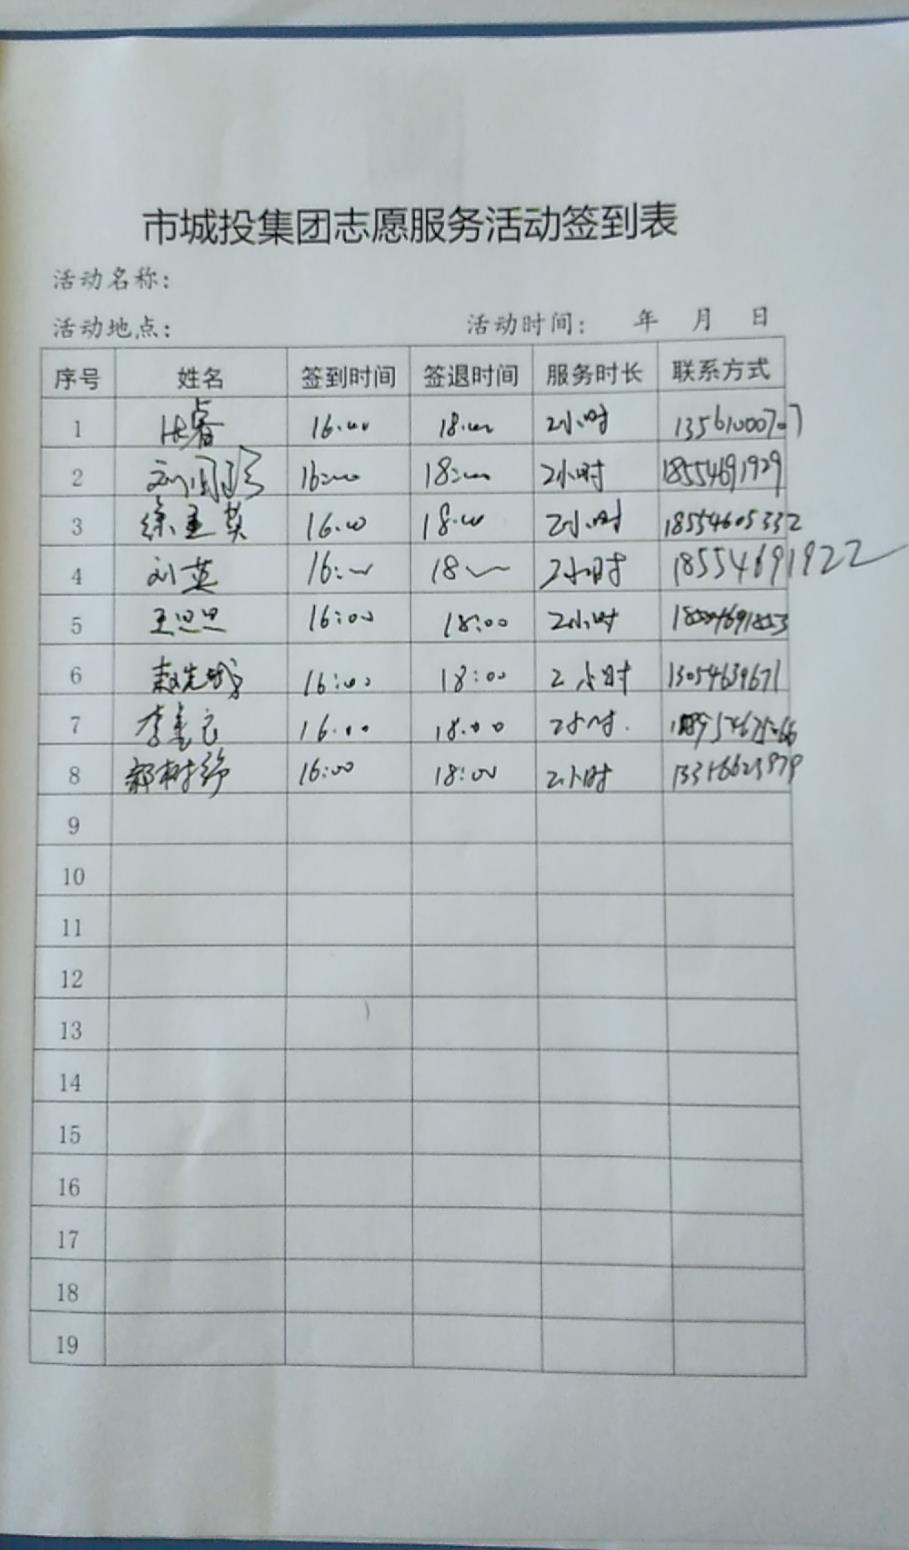 市城投集团志愿服务活动签到表
活动名称:
活动地点: 活动时间: 年 月 日
序号 姓名 签到时间 签退时间 服务时长 联系方式
1 16:00 18:00 2小时
2 16:00 18:00 2小时 18554691929
3 16:00 18:00 2小时 18554605332
4 刘英 16:00 18:00 2小时 18554691922
5 王思思 16:00 18:00 2小时
6 16:00 18:00 2小时 13054639671
7 16:00 18:00 2小时
8 16:00 18:00 2小时
9
10
11
12
13
14
15
16
17
18
19